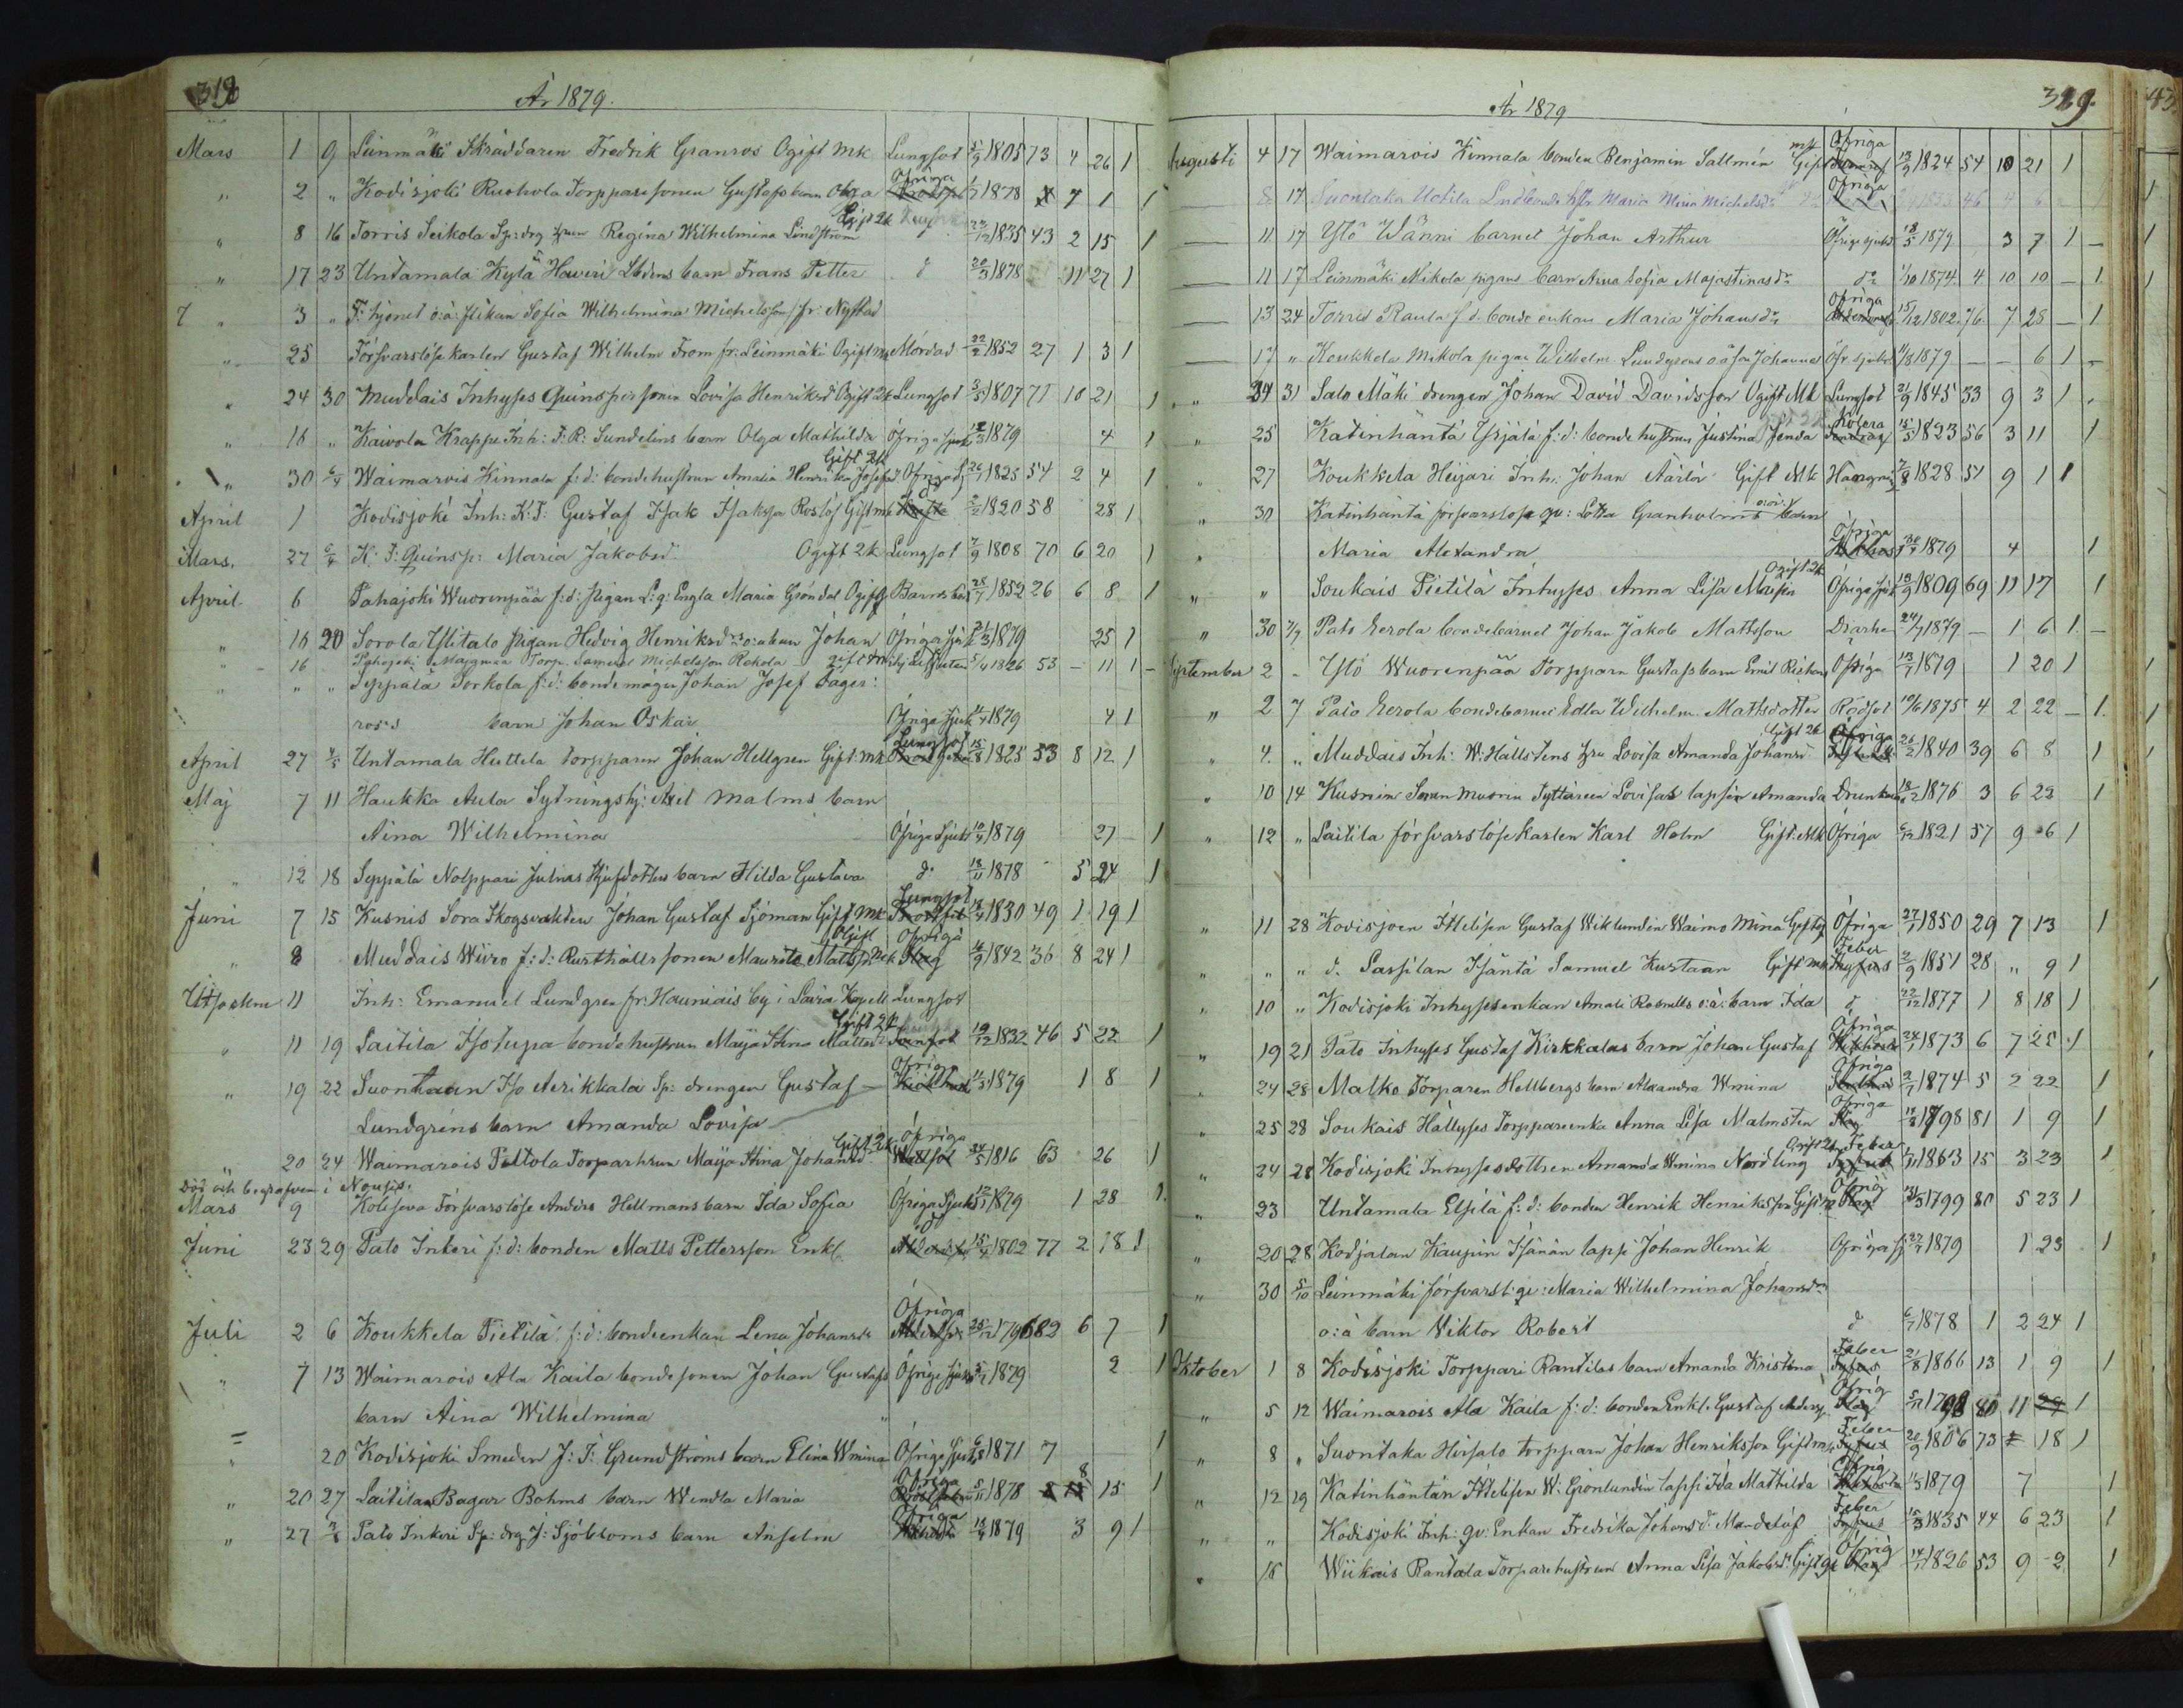 318
År 1879.
Mars 1 9 Leinmäki Skräddaren Fredrik Granros Ogift Mk Lungsot 5/9 1805 73 4 26 1
" 2 " Kodisjoki Ruohola Torpparesonen Gustafs barn Olga Öfriga 1878 7 1 1
" 8 16 Torris Seikola Sp: drg hrun Regina Wilhelmina Lindström Gift 2k 1835 43 2 15 1
" 17 23 Untamala Kylä Haveri Lbdens barn Frans Petter d 20/3 1878 11 27 1
" 3 " F: hjonet o:ä: flikan Sofia Wilhelmina Michelsson fr: Nystad
" 25 Försvarslöse karlen Gustaf Wilhelm From fr: Leinmäki Ogift Mk Mördad 22/2 1852 27 1 3 1
" 24 30 Muddais Inhyses Quinspersonen Lovisa Henriksd Ogift 2k Lungsot 3/5 1807 71 10 21 1
" 16 " Kaivola Krappe Inh: F. R: Sundelins barn Olga Mathilda Öfriga sjuk 12/3 1879 4 1
" 30 6/4 Waimarois Kinnala f: d: bondehustrun Amalia Henrika Josefsd Gift 2k Öfriga sj 26/1 1825 54 2 4 1
April 1 Kodisjoki Inh: K: F: Gustaf Isak Isaksson Roslöf Gift mk 2/2 1820 58 28 1
Mars. 27 6/4 K: F: Quinsp: Maria Jakobsd. Ogift 2k Lungsot 7/9 1808 70 6 20 1
April 6 Pahajoki Wuorenpää f: d: pigan L: g: Engla Maria Gröndal Ogift Barnsbörd 28/7 1852 26 6 8 1
" 16 20 Sorola Ylitalo Pigan Hedvig Henriksdrs o: a barn Johan Öfriga sjuk 21/3 1879 25 1
" 16 Pahojoki Majamaa Torp. Samuel Michelsson Rekola gift m 5/4 1826 53 – 11 1 –
" " " Seppälä Torkola f: d: bonde mågen Johan Josef Fager:
ros:s barn Johan Oskar Öfriga Sjuk 11/4 1879 4 1
April 27 4/5 Untamala Huttela torpparen Johan Hellgren Gift: mk Lungsot 15/8 1825 53 8 12 1
Maj 7 11 Haukka Aula Sytningshj: Axel Malms barn
Aina Wilhelmina Öfriga Sjuk 10/4 1879 27 1
" 12 18 Seppälä Nolppari Julnas Styfdotters barn Hilda Gustava d: 18/11 1878 5 24 1
Juni 7 15 Kusnis Sora Skogsvakten Johan Gustaf Sjöman Gift Mk Lungsot 18/4 1830 49 1 19 1
" 8 Muddais Wiiro f: d: Rusthålls sonen Maurits Mattsson Ogift mk Öfriga 14/9 1842 36 8 24 1
Utsocken 11 Inh: Emanuel Lundgren fr: Hauniais by i Lavia Kapell Lungsot
" 11 19 Laitila Isotupa bondehustrun Maija Stina Mattsd Gift 2k 19/12 1832 46 5 22 1
" 19 22 Suontaan Iso Aerikkala Sp: drengen Gustaf – Öfrig 11/5 1879 1 8 1
Lundgréns barn Amanda Lovisa
" 20 24 Waimarois Peltola Torparhrun Maija Stina Johansd Gift 2k Öfriga 24/5 1816 63 26 1
Död och begrafven i Nousis.
Mars 9 Kolesova Försvarslöse Anders Hellmans barn Ida Sofia Öfriga Sjuk 12/1 1879 1 28 1.
Juni 23 29 Pato Inkeri f: d: bonden Matts Pettersson Enkl. 15/4 1802 77 2 18 1
Juli 2 6 Koukkela Pietilä f: d: bondeenkan Lena Johansdr Öfriga 25/12 1796 82 6 7 1
" 7 13 Waimarois Ala Kaila bondesonen Johan Gustafs Öfriga Sjuk 5/7 1879 2 1
barn Aina Wilhelmina "
" 20 Kodisjoki Smeden J: F: Grundströms barn Elina Wmina Öfriga Sjuk 1871 7 1
" 20 27 Laitilan Bagar Bohms barn Wendla Maria Öfriga 5/11 1878 8 15 1
" 27 3/8 Pato Inkeri Sp: drg J: Sjöbloms barn Anselm Öfriga 18/4 1879 3 9 1
319.
År 1879
Augusti 4 17 Waimarois Kinnala bonden Benjamin Sallmén Gift mk Öfriga 13/9 1824 54 10 21 1
8 17 Suontaka Uotila Lndbonde hstr Maria Mina Michelsdr Öfriga 1833 46 4 6 1
— 11 17 Ytö Wänni barnet Johan Arthur Öfriga sjukd 18/5 1879 3 7 1 –
— 11 17 Leinmäki Mikola pigans barn Aina Sofia Majastinasdr do 1/10 1874 4 10 10 – 1.
— 13 24 Torris Raula f d. bonde enkan Maria Johansdr Öfriga 15/12 1802. 76 7 28 – 1
— 17 " Koukkela Mikola pigan Wilhelm. Lundgrens oäson Johannes Öfr. sjukd 11/8 1879 – – 6 1 –
" 24 31 Salo Mäki drengen Johan David Davidsson Ogift Mk Lungsot 21/9 1845 33 9 3 1 "
" 25 Katinhäntä Yrjälä f: d: bondehustrun Justina Jenda Kolera 15/5 1823 56 3 11 1
" 27 Koukkela Heijari Inh: Johan Äärlä Gift Mk Hängning 7/8 1828 51 9 1 1
" 30 Katinhäntä försvarslösa qv: Lotta Granholms oäkta barn
" Maria Alexandra Öfriga 30/4 1879 4 1
" " Soukais Pietilä Inhyses Anna Lisa Mattsdr Ogift 2k Öfriga sjuk 13/9 1809 69 11 17 1
" 30 7/9 Pato Eerola bondebarnet Johan Jakob Mattsson Diarhe 24/7 1879 – 1 6 1. –
September 2 " Ytö Wuorenpää Torpparn Gustafs barn Emil Richard Öfriga 13/7 1879 1 20 1
" 2 7 Pato Eerola bondebarnet Edla Wilhelm. Mattsdotter Rödsot 10/6 1875 4 2 22 – 1.
" 4. " Muddais Inh: W: Hällstens hru Lovisa Amanda Johansd Gift 2k Öfriga 26/2 1840 39 6 8 1
" 10 14 Kusnin Soran Muorin Tyttären Lovisas lapsen Amanda Drunknade 18/2 1876 3 6 22 1
" 12 " Laitila försvarslöse karlen Karl Holm Gift Mk Öfriga 6/12 1821 57 9 6 1
" 11 28 Kodisjoen Itselisen Gustaf Wiklundin Waimo Mina Gift Öfriga 27/1 1850 29 7 13 1
" " " d. Lassilan Isäntä Samuel Kustaan Gift mk Feber 2/9 1851 28 " 9 1
" 10 " Kodisjoki Inhysesenkan Amali Roslunds o:ä: barn Ida d 22/12 1877 1 8 18 1
" 19 21 Pato Inhyses Gustaf Kirkkalas barn Johan Gustaf Öfriga 24/1 1873 6 7 25 1
" 24 28 Malko Torparen Hellbergs barn Alexandra Wmina Öfriga 2/7 1874 5 2 22 1
" 25 28 Soukais Hällyses Torppareenka Anna Lisa Malmsten Öfriga 1798 81 1 9 1
" 24 28 Kodisjoki Inhysesdottren Amanda Wmina Nordling Ogift 2k Feber 1/11 1863 15 3 23 1
" 23 Untamala Elsilä f: d: bonden Henrik Henriksson Gift m Öfrig 31/3 1799 80 5 23 1
" 20 28 Kodjalan Kaupin Isännän lapsi Johan Henrik Öfriga sj 27/7 1879 1 23 1
" 30 5/10 Leinmäki försvarsl: qv: Maria Wilhelmina Johansdrs
o:ä barn Viktor Robert d 6/7 1878 1 2 24 1
Oktober 1 8 Kodisjoki Torppari Rantilas barn Amanda Kristina Feber 21/8 1866 13 1 9 1
" 5 12 Waimarois Ala Kaila f: d: bonden Enkl. Gustaf Anderss. Öfrig 1798 80 11 29 1
" 8 " Suontaka Hirsalo torpparn Johan Henriksson Gift mk Feber 20/9 1806 73 18 1
" 12 19 Katinhäntän Itselisen W: Grönlundin lapsi Ida Mathilda Öfrig 11/3 1879 7 1
" " Kodisjoki Inh: qv: Enkan Fredrika Johansd: Mandelöf Feber 15/3 1835 44 6 23 1
" 16 Wiikais Rantala Torparehustrun Anna Lisa Jakobsdr Gift qk Öfrig 14/1 1826 53 9 2 1
43